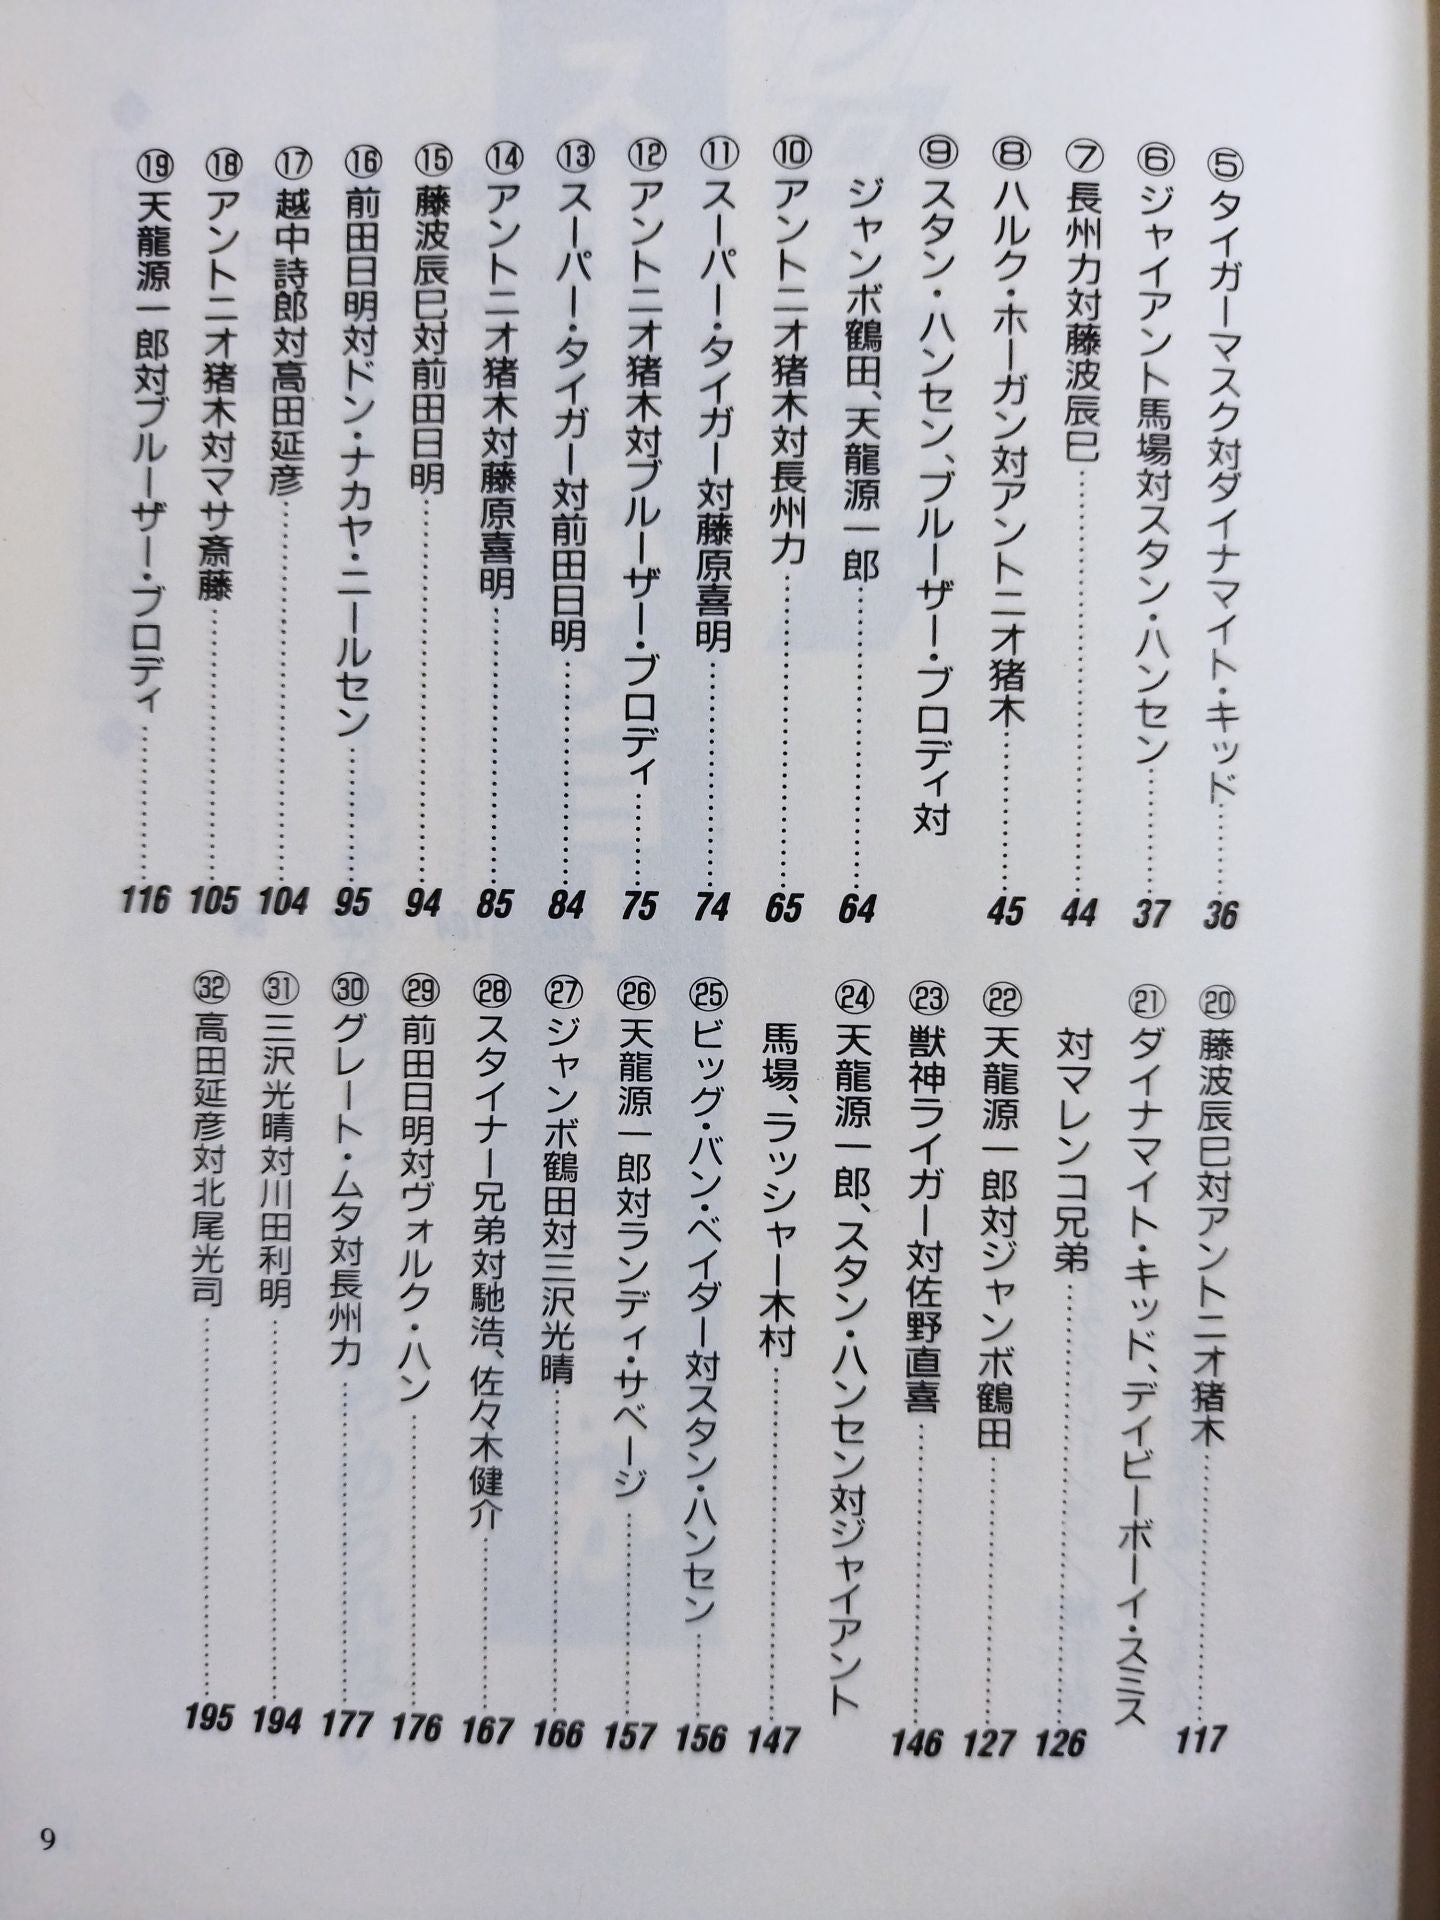 ⑤タイガーマスク対ダイナマイト・キッド……………36
⑥ジャイアント馬場対スタン・ハンセン……………37
⑦長州力対藤波辰巳……………44
⑧ハルク・ホーガン対アントニオ猪木……………45
⑨スタン・ハンセン、ブルーザー・ブロディ対
ジャンボ鶴田、天龍源一郎……………64
⑩アントニオ猪木対長州力……………65
⑪スーパー・タイガー対藤原喜明……………74
⑫アントニオ猪木対ブルーザー・ブロディ……………75
⑬スーパー・タイガー対前田日明……………84
⑭アントニオ猪木対藤原喜明……………85
⑮藤波辰巳対前田日明……………94
⑯前田日明対ドン・ナカヤ・ニールセン……………95
⑰越中詩郎対高田延彦……………104
⑱アントニオ猪木対マサ斎藤……………105
⑲天龍源一郎対ブルーザー・ブロディ……………116
⑳藤波辰巳対アントニオ猪木……………117
㉑ダイナマイト・キッド、デイビーボーイ・スミス
対マレンコ兄弟……………126
㉒天龍源一郎対ジャンボ鶴田……………127
㉓獣神ライガー対佐野直喜……………146
㉔天龍源一郎、スタン・ハンセン対ジャイアント
馬場、ラッシャー木村……………147
㉕ビッグ・バン・ベイダー対スタン・ハンセン……………156
㉖天龍源一郎対ランディ・サベージ……………157
㉗ジャンボ鶴田対三沢光晴……………166
㉘スタイナー兄弟対馳浩、佐々木健介……………167
㉙前田日明対ヴォルク・ハン……………176
㉚グレート・ムタ対長州力……………177
㉛三沢光晴対川田利明……………194
㉜高田延彦対北尾光司……………195
9